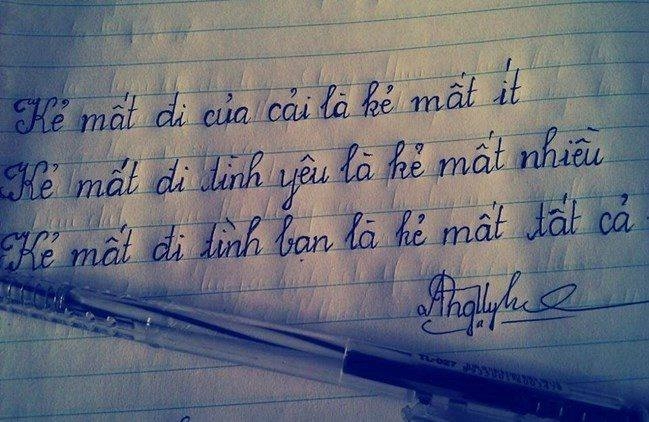 Kẻ mất đi của cải là kẻ mất ít
Kẻ mất đi tình yêu là kẻ mất nhiều
Kẻ mất đi tình bạn là kẻ mất tất cả
TL-027